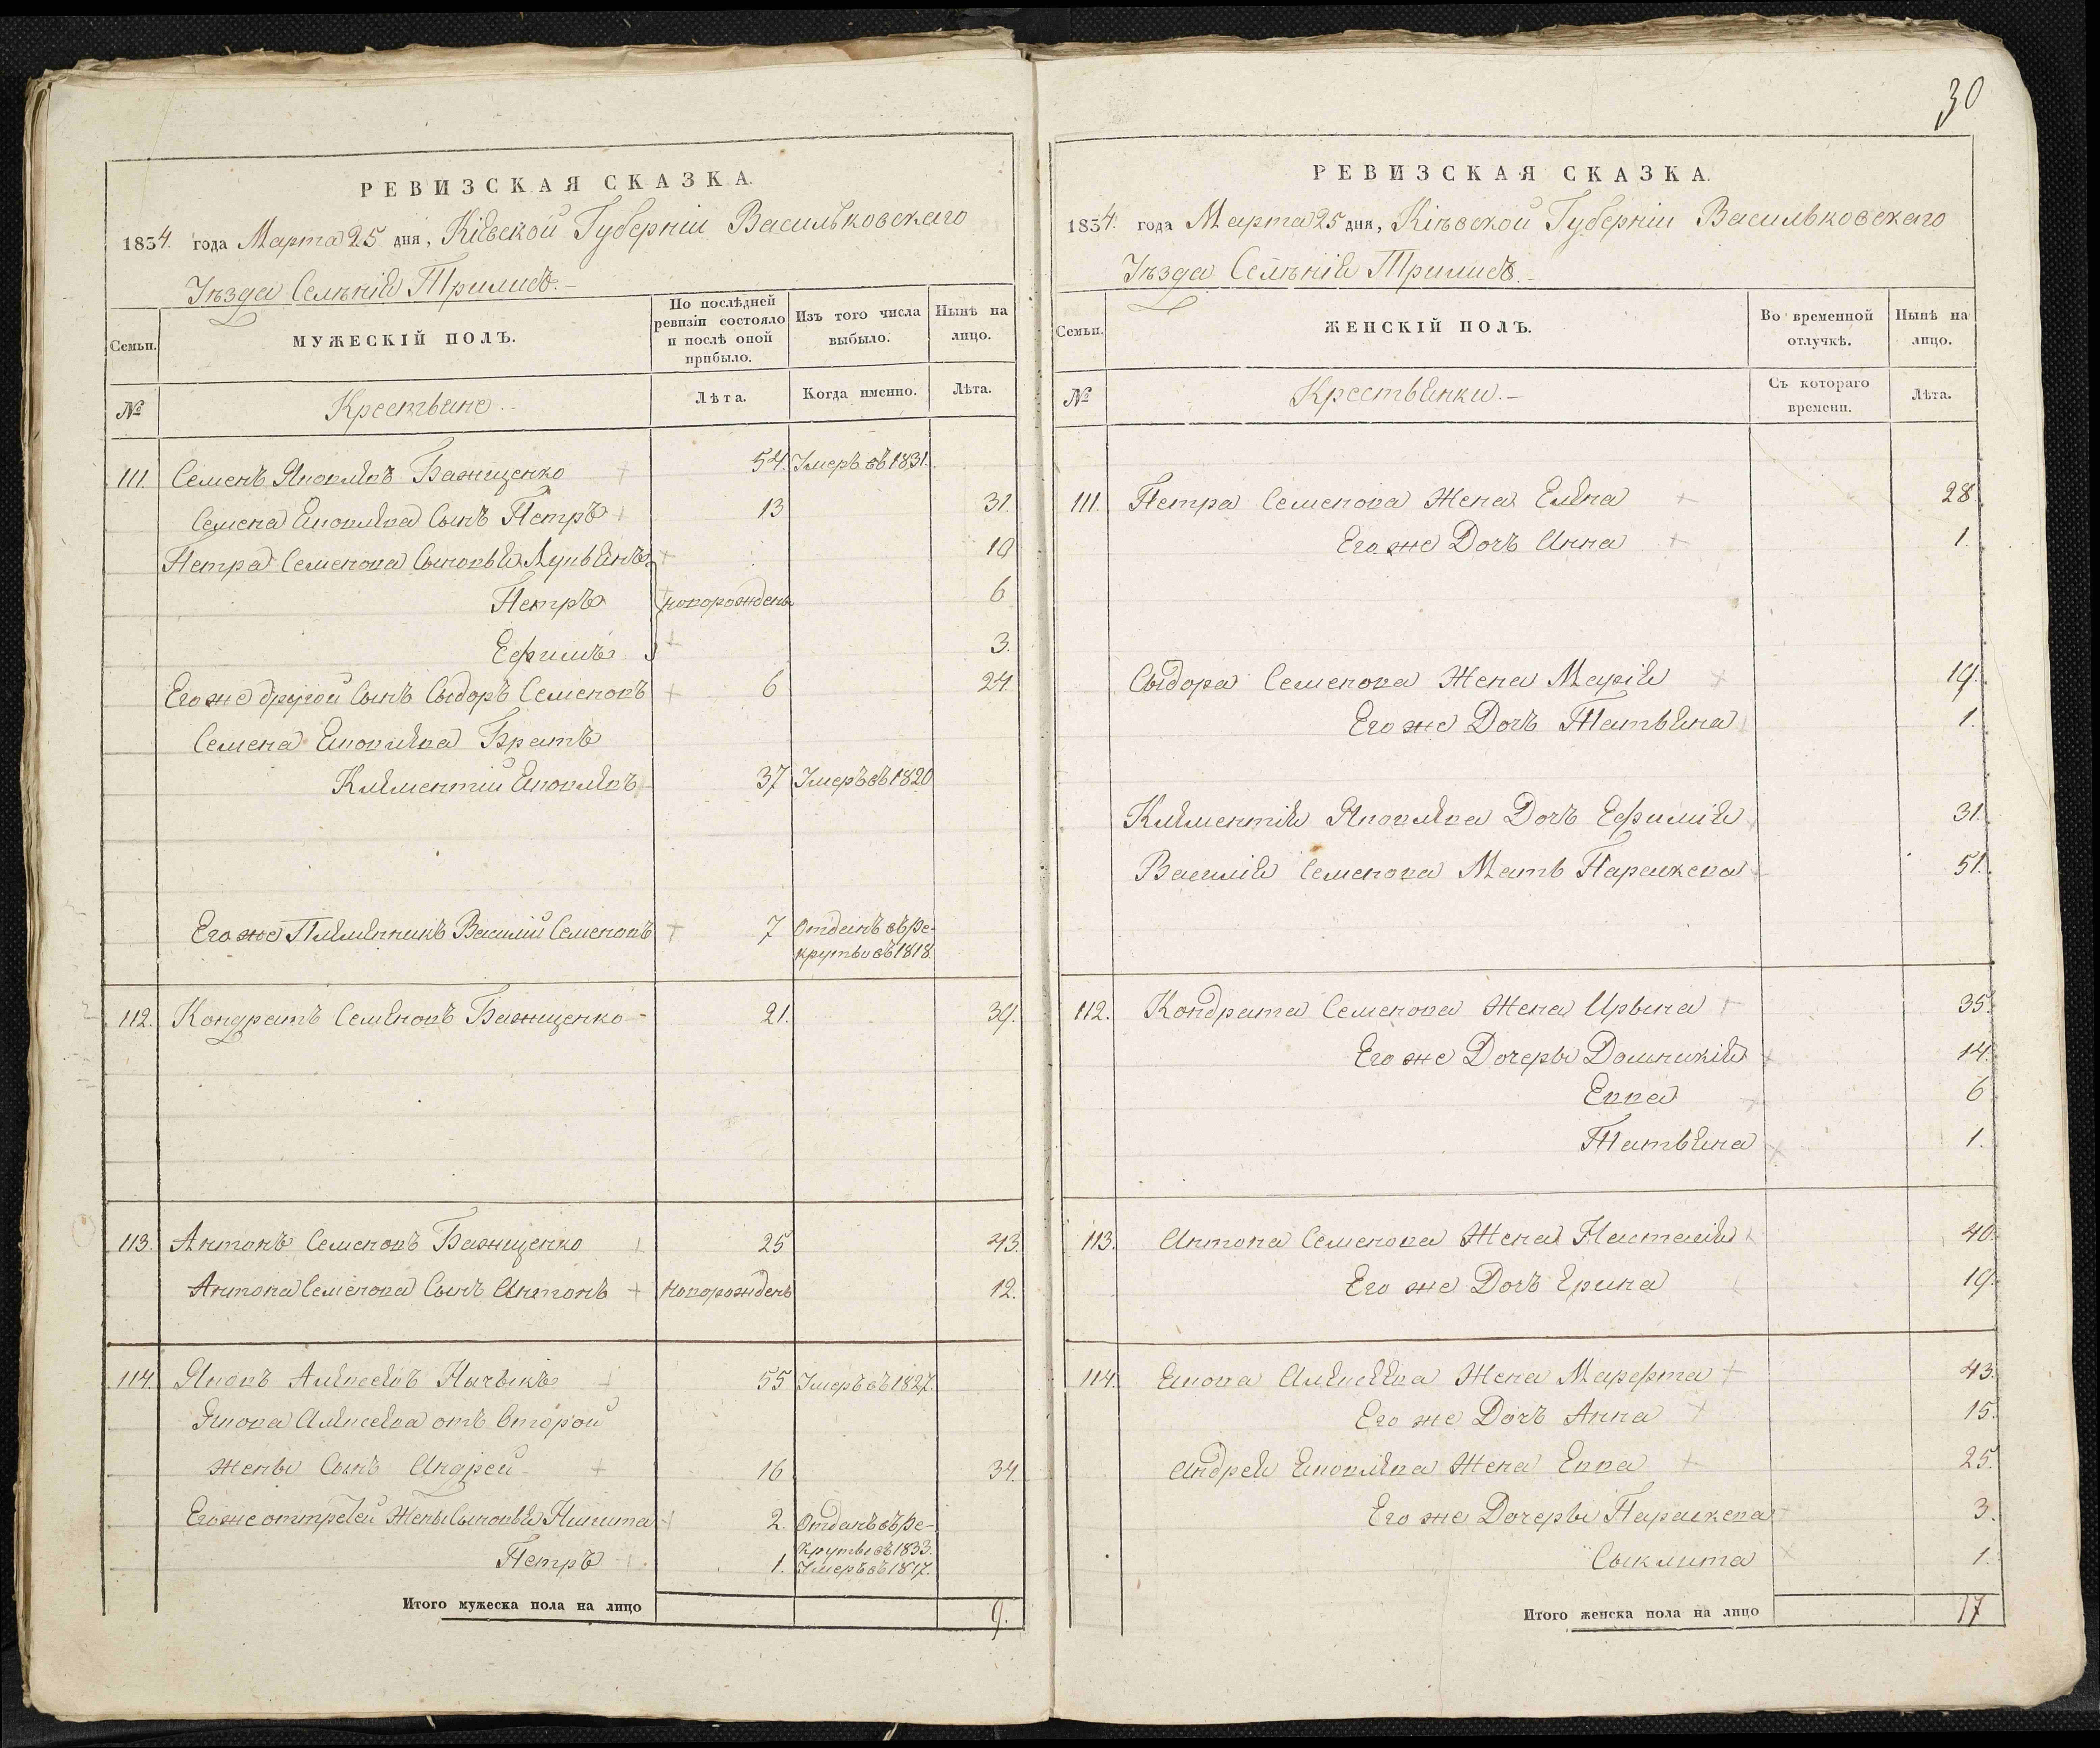 30
РЕВИЗСКАЯ СКАЗКА.
1834. года Марта 25 дня, Кіевской Губерніи Васильковскаго
Уѣзда Селѣнія Трилисъ.
Семьи.
МУЖЕСКІЙ ПОЛЪ.
По послѣдней ревизіи состояло и послѣ оной прибыло.
Изъ того числа выбыло.
Нынѣ на лицо.
№
Крестьяне.
Лѣта.
Когда именно.
Лѣта.
111. Семенъ Яковлѣвъ Бажищенко 54. Умеръ въ 1831.
Семена Яковлѣва Сынъ Петръ 13 31.
Петра Семенова Сыновья Лукьянъ 10
Петръ новорожденъ 6
Ефимъ 3.
Его же другой Сынъ Сыдоръ Семеновъ 6 24
Семена Яковлѣва Братъ
Клѣментій Яковлѣвъ 37 Умеръ въ 1820
Его же Плѣмянникъ Василій Семеновъ 7 Отданъ въ ре-
круты въ 1818.
112. Кондратъ Семѣновъ Бажищенко 21. 39.
113. Антонъ Семеновъ Бажищенко 25 43.
Антона Семенова Сынъ Антонъ новорожденъ 12.
114. Яковъ Алѣксеѣвъ 55 Умеръ въ 1827.
Якова Алѣксеѣва отъ второй
жены Сынъ Андрей 16 34.
Его же оттретей Жены Сыновья Никита 2. Отданъ въ ре-
круты въ 1833.
Петръ 1. Умеръ въ 1817.
Итого мужеска пола на лицо 9.
РЕВИЗСКАЯ СКАЗКА.
1834. года Марта 25 дня, Кіевской Губерніи Васильковскаго
Уѣзда Селѣнія Трилисъ.
Семьи.
ЖЕНСКІЙ ПОЛЪ.
Во временной отлучкѣ.
Нынѣ на лицо.
№
Крестьянки.
Съ котораго времени.
Лѣта.
111. Петра Семенова Жена Елѣна 28.
Его же Дочъ Анна 1.
Сыдора Семенова Жена Марія 19.
Его же Дочъ Татьяна 1.
Клѣментія Яковлѣва Дочъ Ефимія 31.
Василія Семенова Мать Параскева 51.
112. Кондрата Семенова Жена Ирына 35.
Его же Дочеры Домникія 14.
Евва 6
Татьяна 1.
113. Антона Семенова Жена Наталія 40.
Его же Дочъ Ерина 19.
114. Якова Алѣксеѣва Жена Марфта 43.
Его же Дочъ Анна 15.
Андрея Яковлѣва Жена Евва 25.
Его же Дочеры Параскева 3.
Сыклита 1.
Итого женска пола на лицо 17